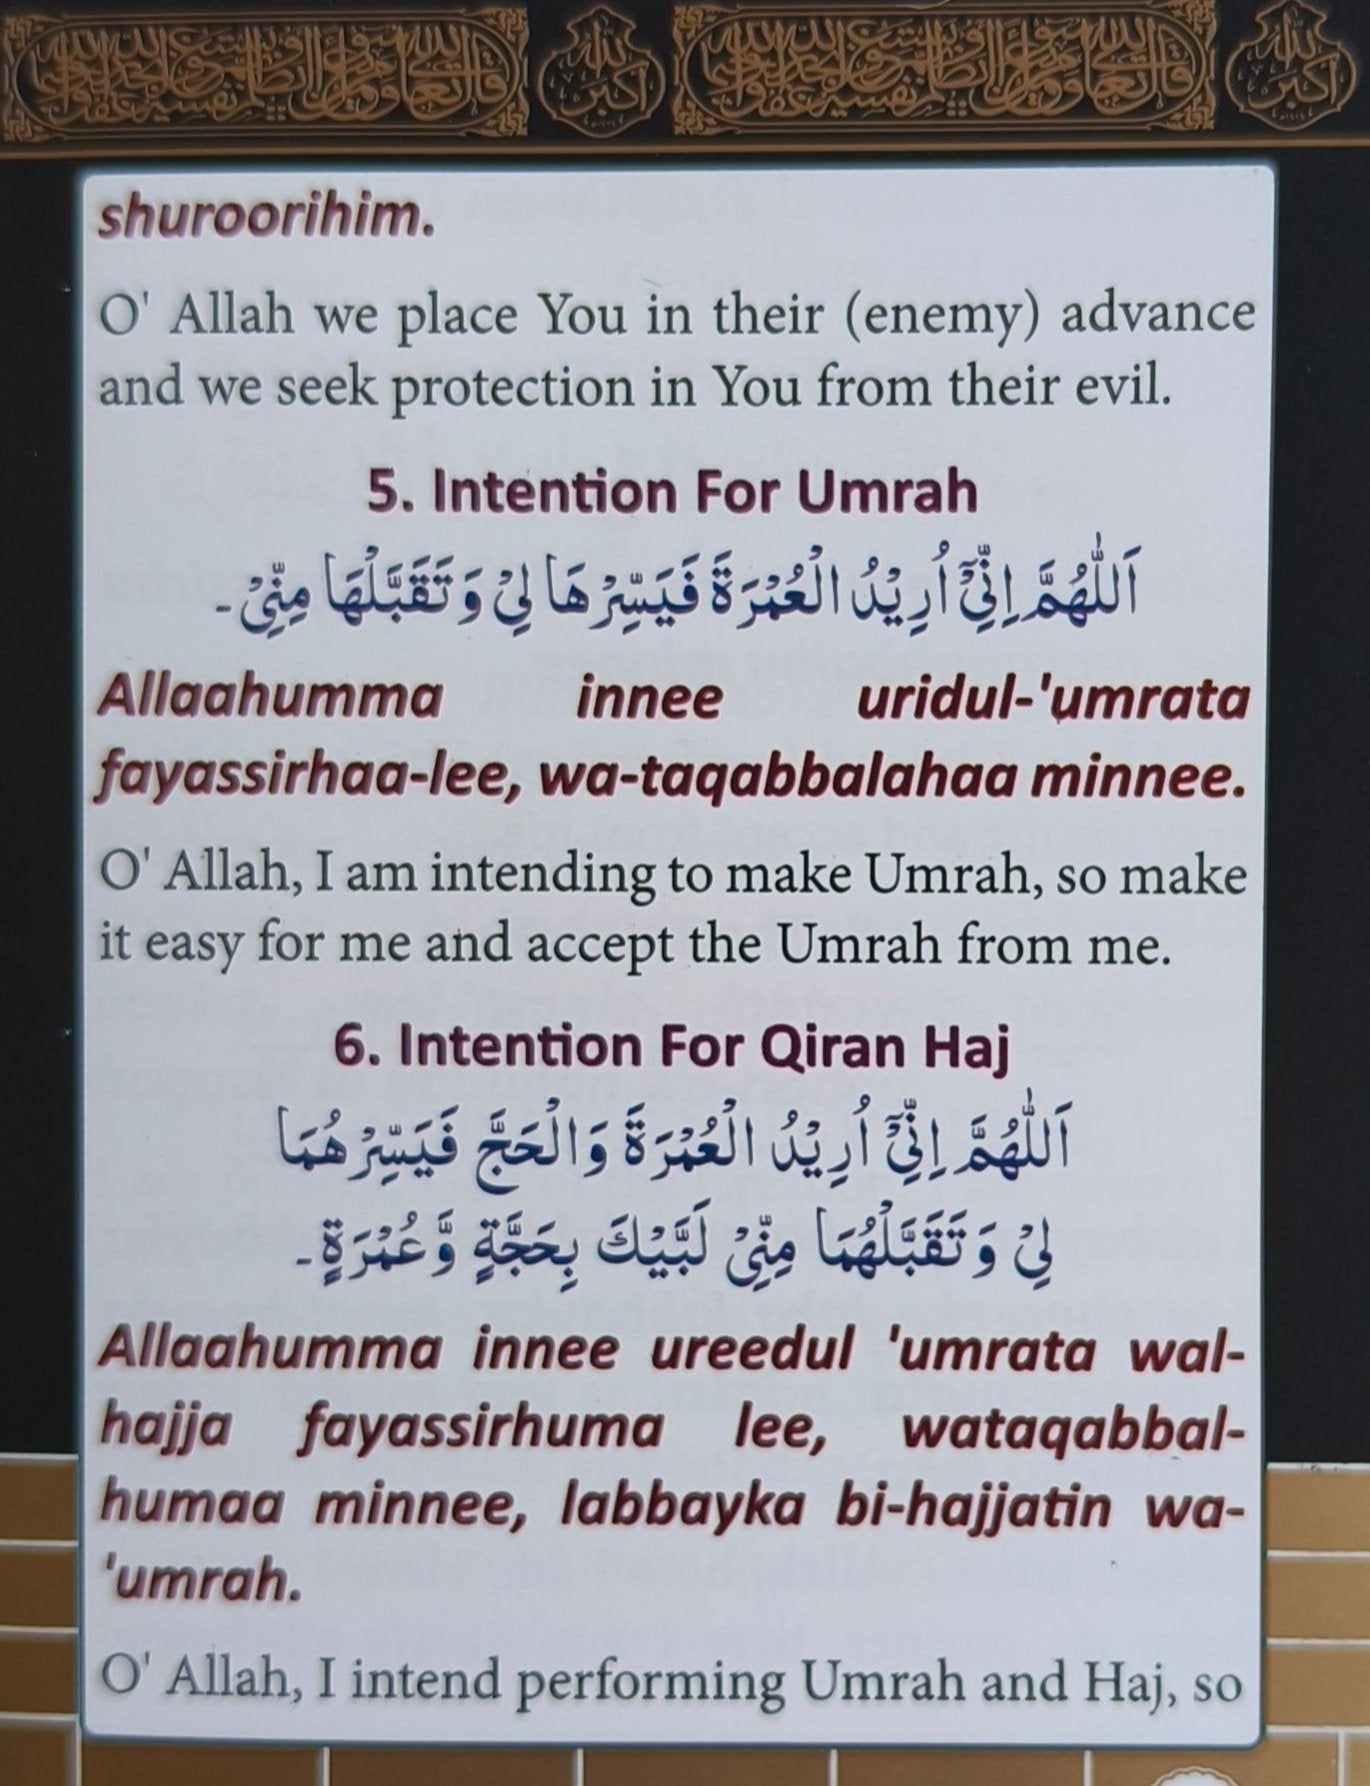 الله أكبر
الله أكبر
shuroorihim.
O' Allah we place You in their (enemy) advance
and we seek protection in You from their evil.
5. Intention For Umrah
اَللّٰهُمَّ اِنِّيْٓ اُرِيْدُ الْعُمْرَةَ فَيَسِّرْهَا لِيْ وَتَقَبَّلْهَا مِنِّيْ۔
Allaahumma innee uridul-'umrata
fayassirhaa-lee, wa-taqabbalahaa minnee.
O' Allah, I am intending to make Umrah, so make
it easy for me and accept the Umrah from me.
6. Intention For Qiran Haj
اَللّٰهُمَّ اِنِّيْٓ اُرِيْدُ الْعُمْرَةَ وَالْحَجَّ فَيَسِّرْهُمَا
لِيْ وَتَقَبَّلْهُمَا مِنِّيْ لَبَّيْكَ بِحَجَّةٍ وَّعُمْرَةٍ۔
Allaahumma innee ureedul 'umrata wal-
hajja fayassirhuma lee, wataqabbal-
humaa minnee, labbayka bi-hajjatin wa-
'umrah.
O' Allah, I intend performing Umrah and Haj, so